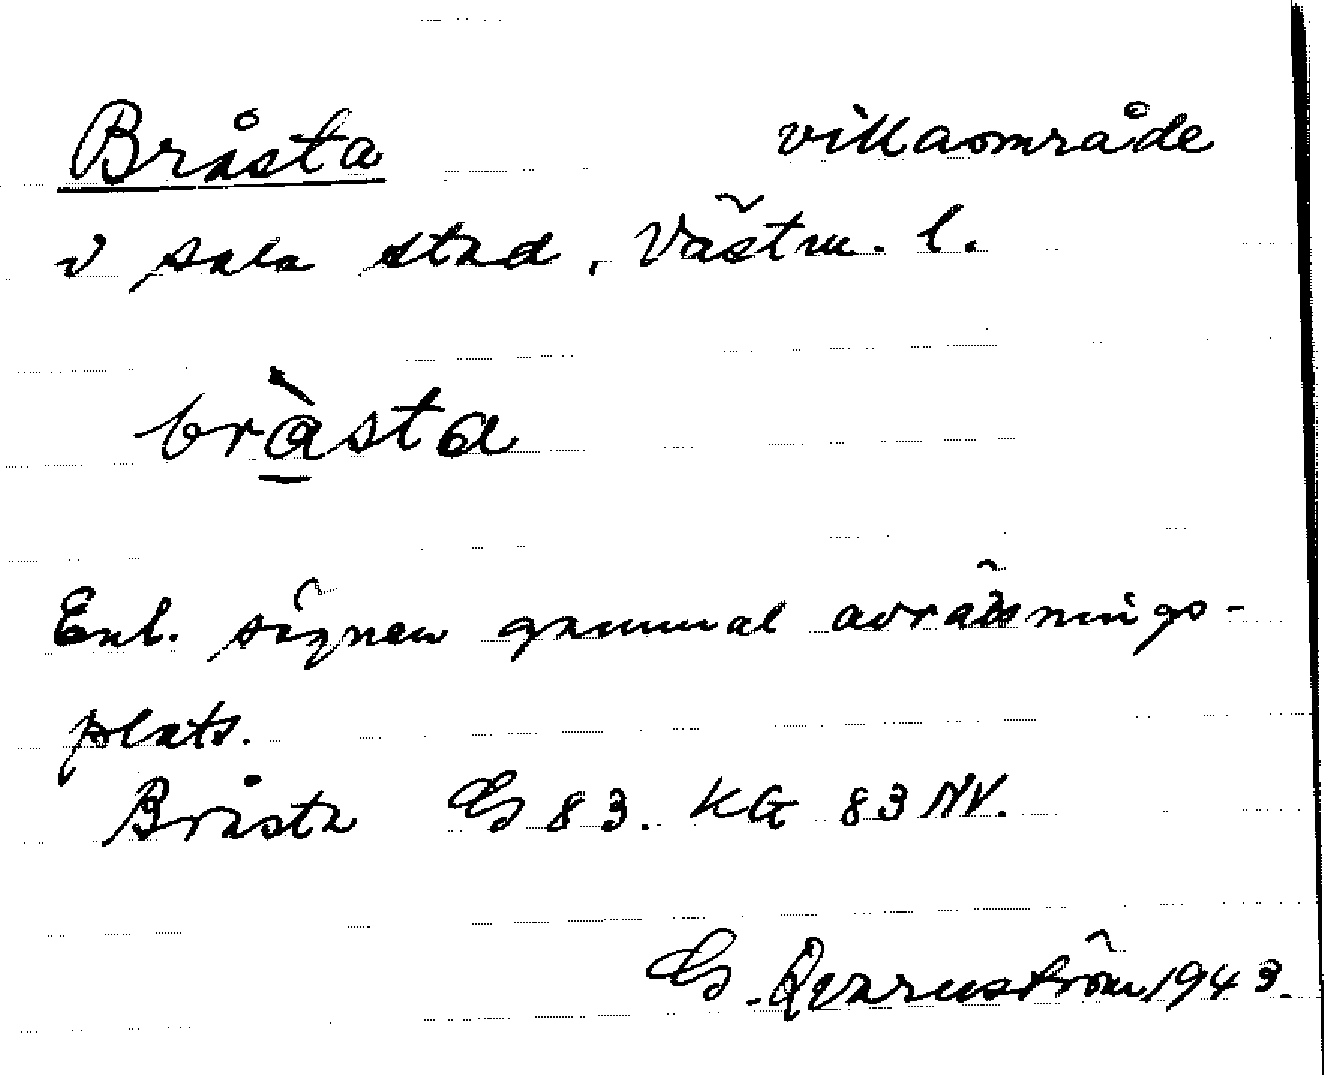 Bråsta villaområde
i Sala stad, Västm. l.
bràsta
Enl. sägnen gammal avrättnings-
plats.
Bråsta G 83. KG 83 NV.
G. Qvarnström 1943.